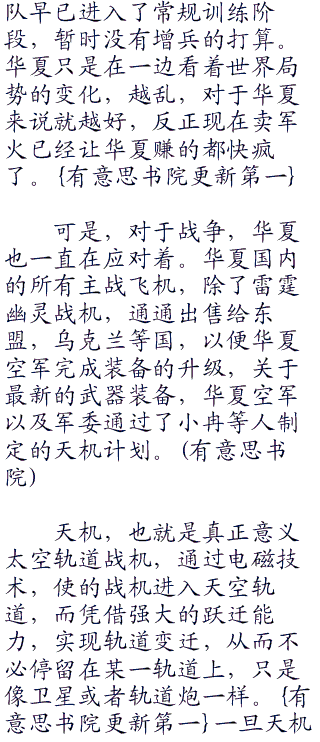 队早已进入了常规训练阶
段，暂时没有增兵的打算。
华夏只是在一边看着世界局
势的变化，越乱，对于华夏
来说就越好，反正现在卖军
火已经让华夏赚的都快疯
了。{有意思书院更新第一}
可是，对于战争，华夏
也一直在应对着。华夏国内
的所有主战飞机，除了雷霆
幽灵战机，通通出售给东
盟，乌克兰等国，以便华夏
空军完成装备的升级，关于
最新的武器装备，华夏空军
以及军委通过了小冉等人制
定的天机计划。(有意思书
院)
天机，也就是真正意义
太空轨道战机，通过电磁技
术，使的战机进入天空轨
道，而凭借强大的跃迁能
力，实现轨道变迁，从而不
必停留在某一轨道上，只是
像卫星或者轨道炮一样。{有
意思书院更新第一}一旦天机